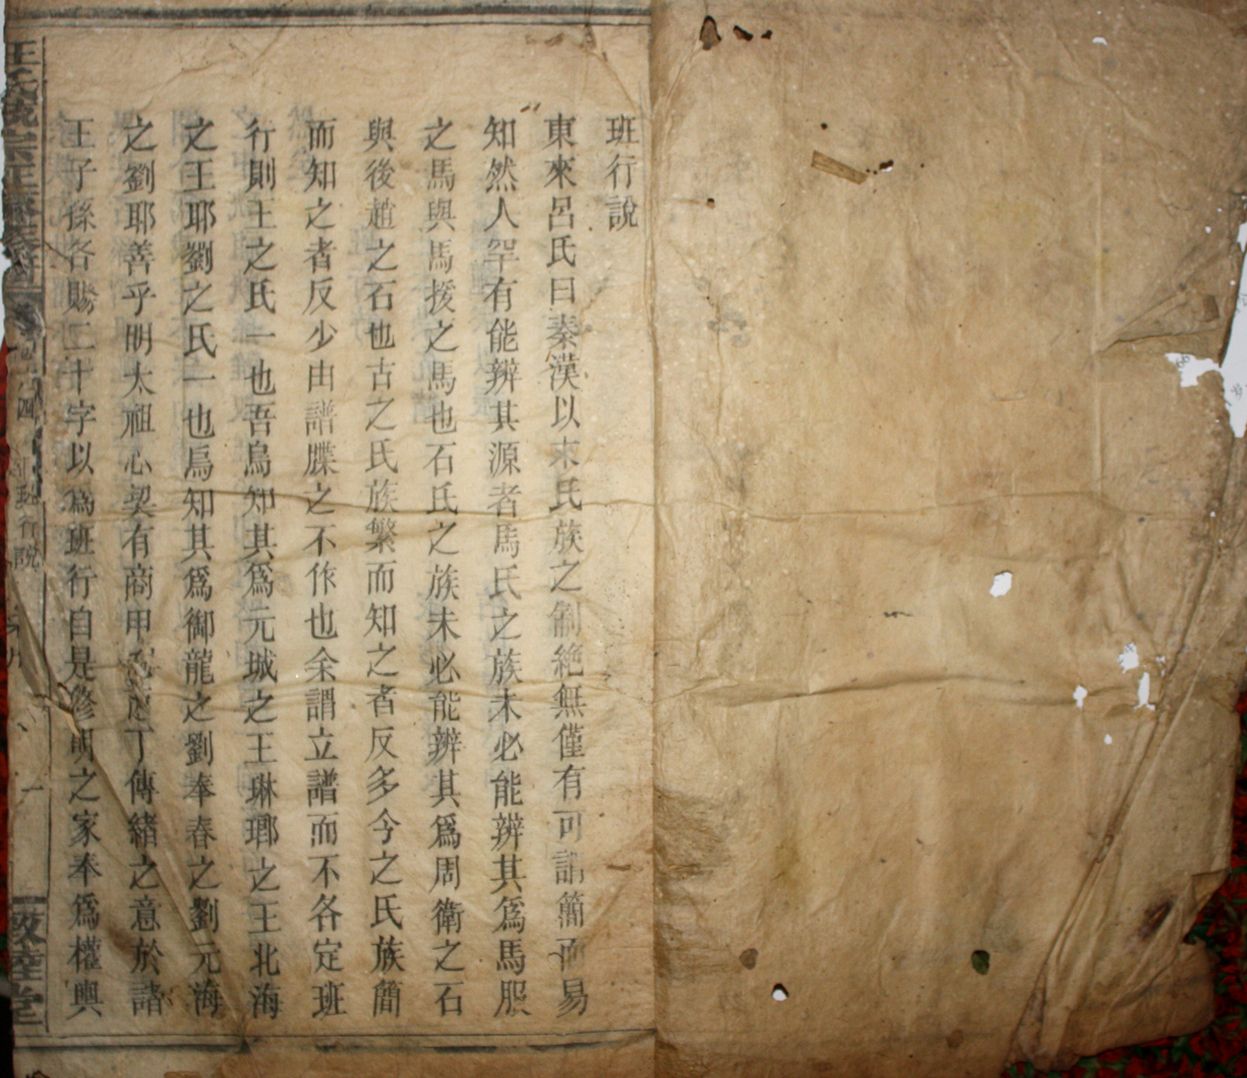 班行說
東來呂氏曰秦漢以來氏族之制絶無僅有可謂簡而易
知然人罕有能辨其源者馬氏之族未必能辨其爲馬服
之馬與馬援之馬也石氏之族未必能辨其爲周衛之石
與後趙之石也古之氏族繁而知之者反多今之氏族簡
而知之者反少由譜牒之不作也余謂立譜而不各定班
行則王之氏一也吾烏知其爲元城之王琳瑯之王北海
之王耶劉之氏一也烏知其爲御龍之劉奉春之劉元海
之劉耶善乎明太祖心契有商甲丁傳緒之意於諸
王子孫各賜二十字以爲班行自是修明之家奉爲權輿
班行說
敦睦堂